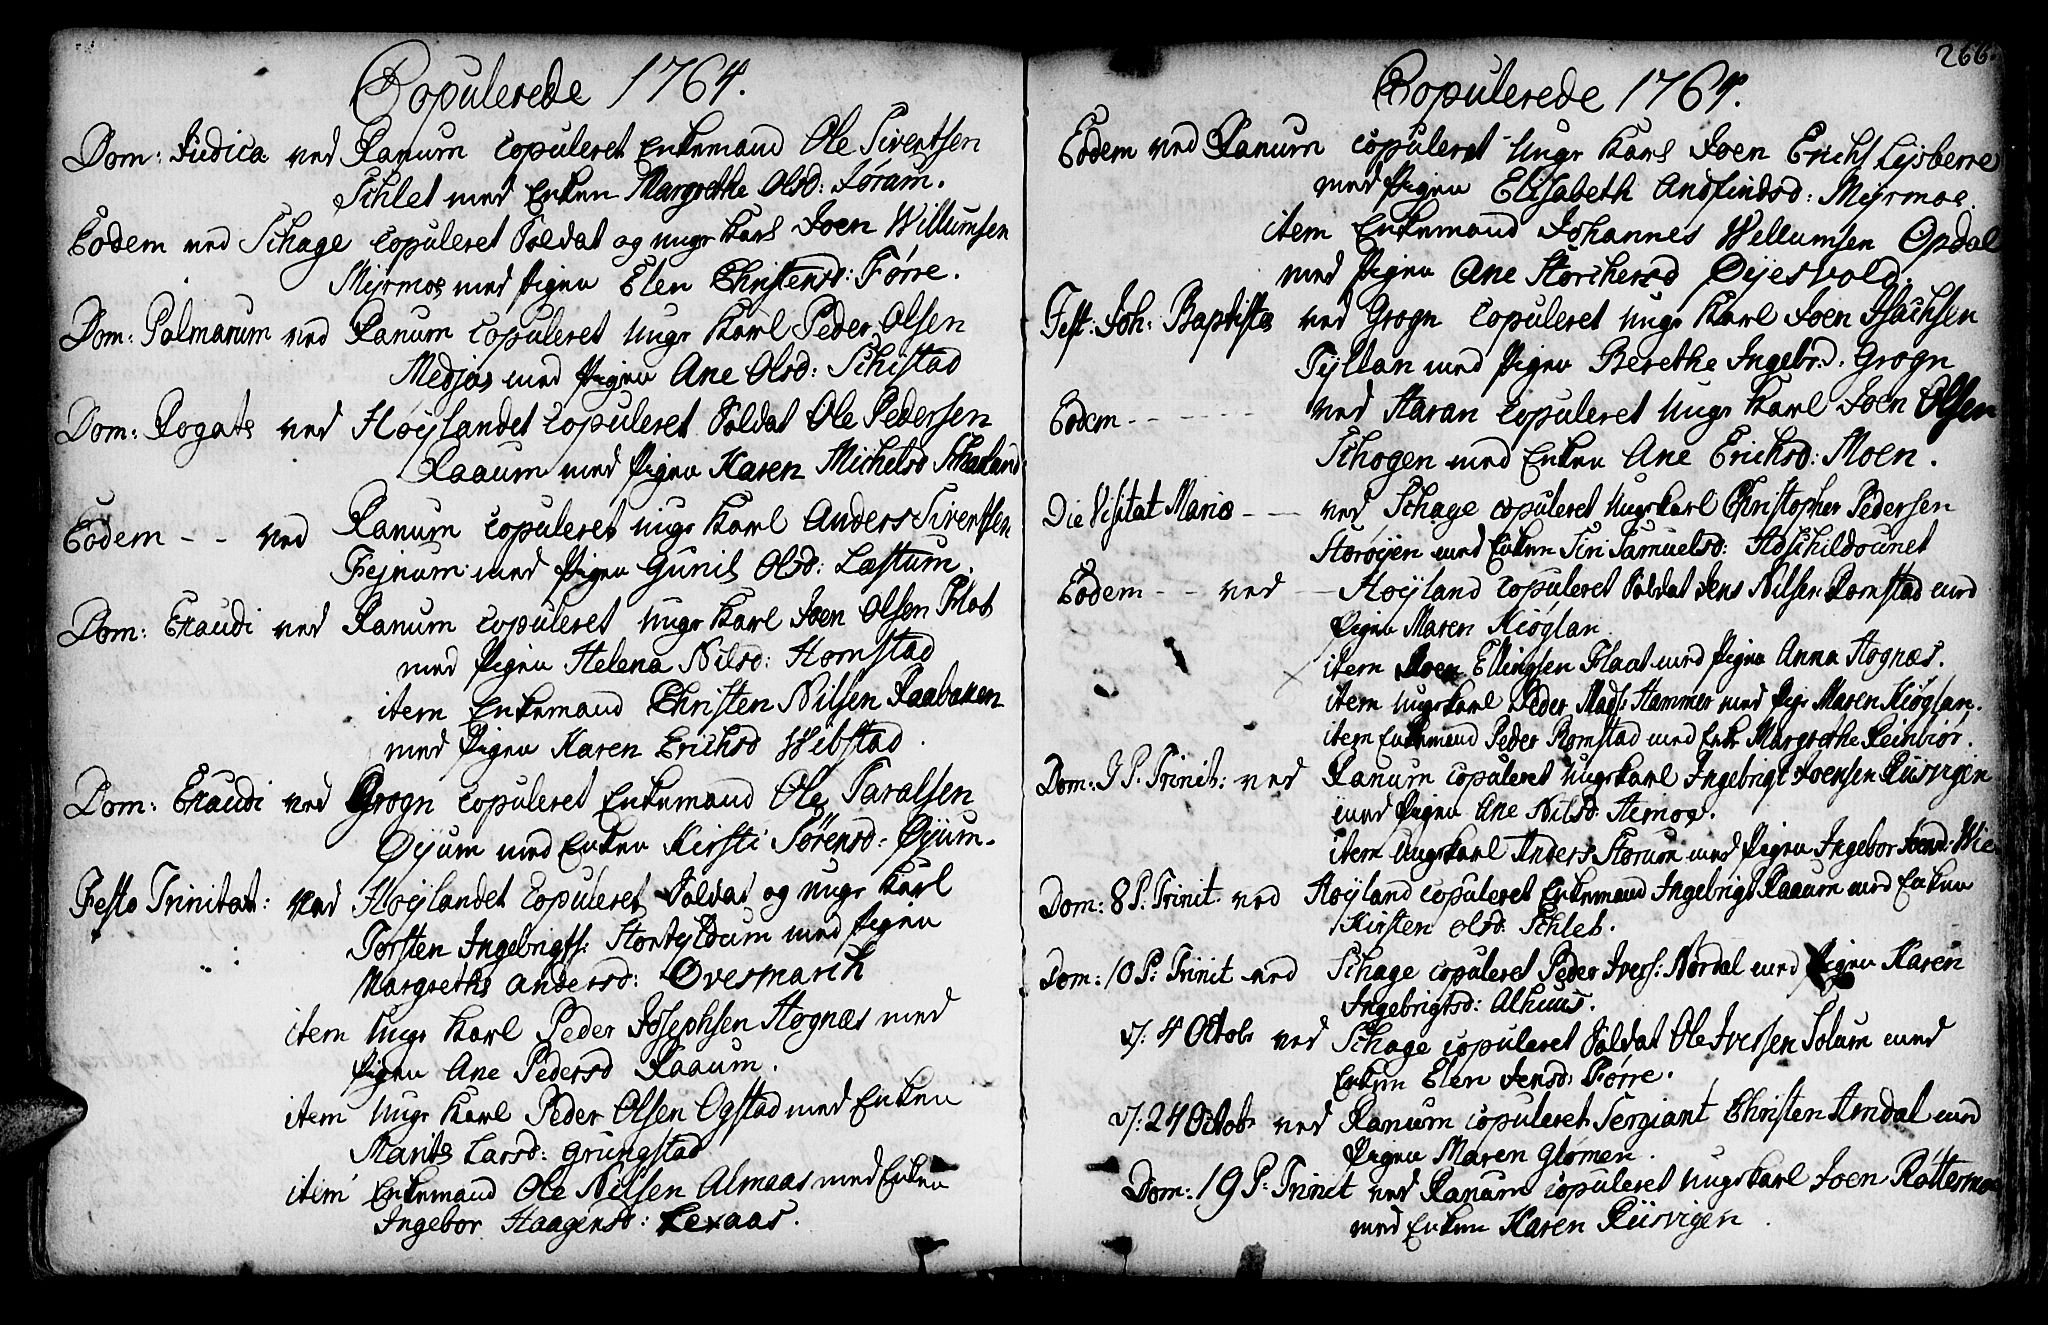 Copulerede 1764.
Dom: Judica ved Ranum copuleret Enkemand Ole Sivertsen
Schlet med Enken Margrethe Olsd: Joram.
Eodem ved Schage copuleret Soldat og unge Karl Joen Willumsen
Myrmoe med Pigen Elen Christensd: Førre.
Dom: Palmarum ved Ranum copuleret unge Karl Peder Olsen
Medjaa med Pigen Ane Olsd: Schistad
Dom: Rogate ved Høylandet copuleret Soldat Ole Pedersen
Raaum med Pigen Karen Michelsd
Eodem - - ved Ranum copuleret unge Karl Anders Sivertsen
med Pigen Gunil Olsd: Læstum.
Dom: Exaudi ved Ranum copuleret unge Karl Joen Olsen Flot
med Pigen Helena Nilsd: Homstad
item Enkemand Christen Nilsen Raabakken
med Pigen Karen Erichsd Wibstad.
Dom: Exaudi ved Grogn copuleret Enkemand Ole Taralsen
Øyum med Enken Kirsti Sørensd: Øyum.
Festo Trinitat: ved Høylandet copuleret Soldat og unge Karl
Torsten Ingebrigts: med Pigen
Margrethe Andersd: Øvesmarck
item unge Karl Peder Josephsen Hognæs med
Pigen Ane Pedersd Raaum.
item unge Karl Peder Olsen Ogstad med Enken
Marite Larsd: Grungstad
item Enkemand Ole Nilsen Almaas med Enken
Ingebor Haagensd: Lexaas.
266.
Copulerede 1764.
Eodem ved Ranum copuleret unge Karl Joen Erichs Lysberre
med Pigen Elisabeth Andfindsd: Myrmoe.
item Enkemand Johannes Wellumsen Opdal
med Pigen Ane Storchersd Øyesvold,
Fest: Joh: Baptistæ ved Grogn copuleret unge Karl Joen Isachsen
Tyldan med Pigen Berethe Ingebrd: Grogn
Eodem - - - - - ved Haran copuleret unge Karl Joen Olsen
Schogen med Enken Ane Erichsd: Moen.
Die Visitat Mariæ - - ved Schage copuleret Ungekarl Christopher Pedersen
Storøyen med Enken Siri Samuelsd:
Eodem - - ved - Høyland copuleret Soldat Jens Nilsen Romstad med
Pigen Maren Kiøglan
item Joen Ellingsen Flaat med Pigen Anna Hognæs.
item Ungekarl Peder Mads: Hammer med Pige Maren Kiøglan.
item Enkemand Peder Romstad med Enke Margrethe Reinbiør.
Dom: 7 P: Trinit: ved Ranum copuleret Ungekarl Ingebrigt Joensen Rusvigen
med Pigen Ane Nilsd: Hemoe.
item Ungekarl Anders Storum med Pigen Ingebor Joensd: Wie
Dom: 8 P: Trinit ved Høyland copuleret Enkemand Ingebrigt Raaum med Enken
Kirsten Olsd: Schlet.
Dom: 10 P: Trinit ved Schage copuleret Peder Ivers: Nordal med Pigen Karen
Ingebrigtsd: Alhuus.
d: 4 Octobr ved Schage copuleret Soldat Ole Iversen Solum med
Enken Elen Jensd: Førre.
d: 24 Octobr ved Ranum copuleret Sergiant Christen Amdal med
Pigen Maren Glømen.
Dom: 19 P: Trinit ved Ranum copuleret Ungekarl Joen Røttesmoe
med Enken Karen Rusvigen.